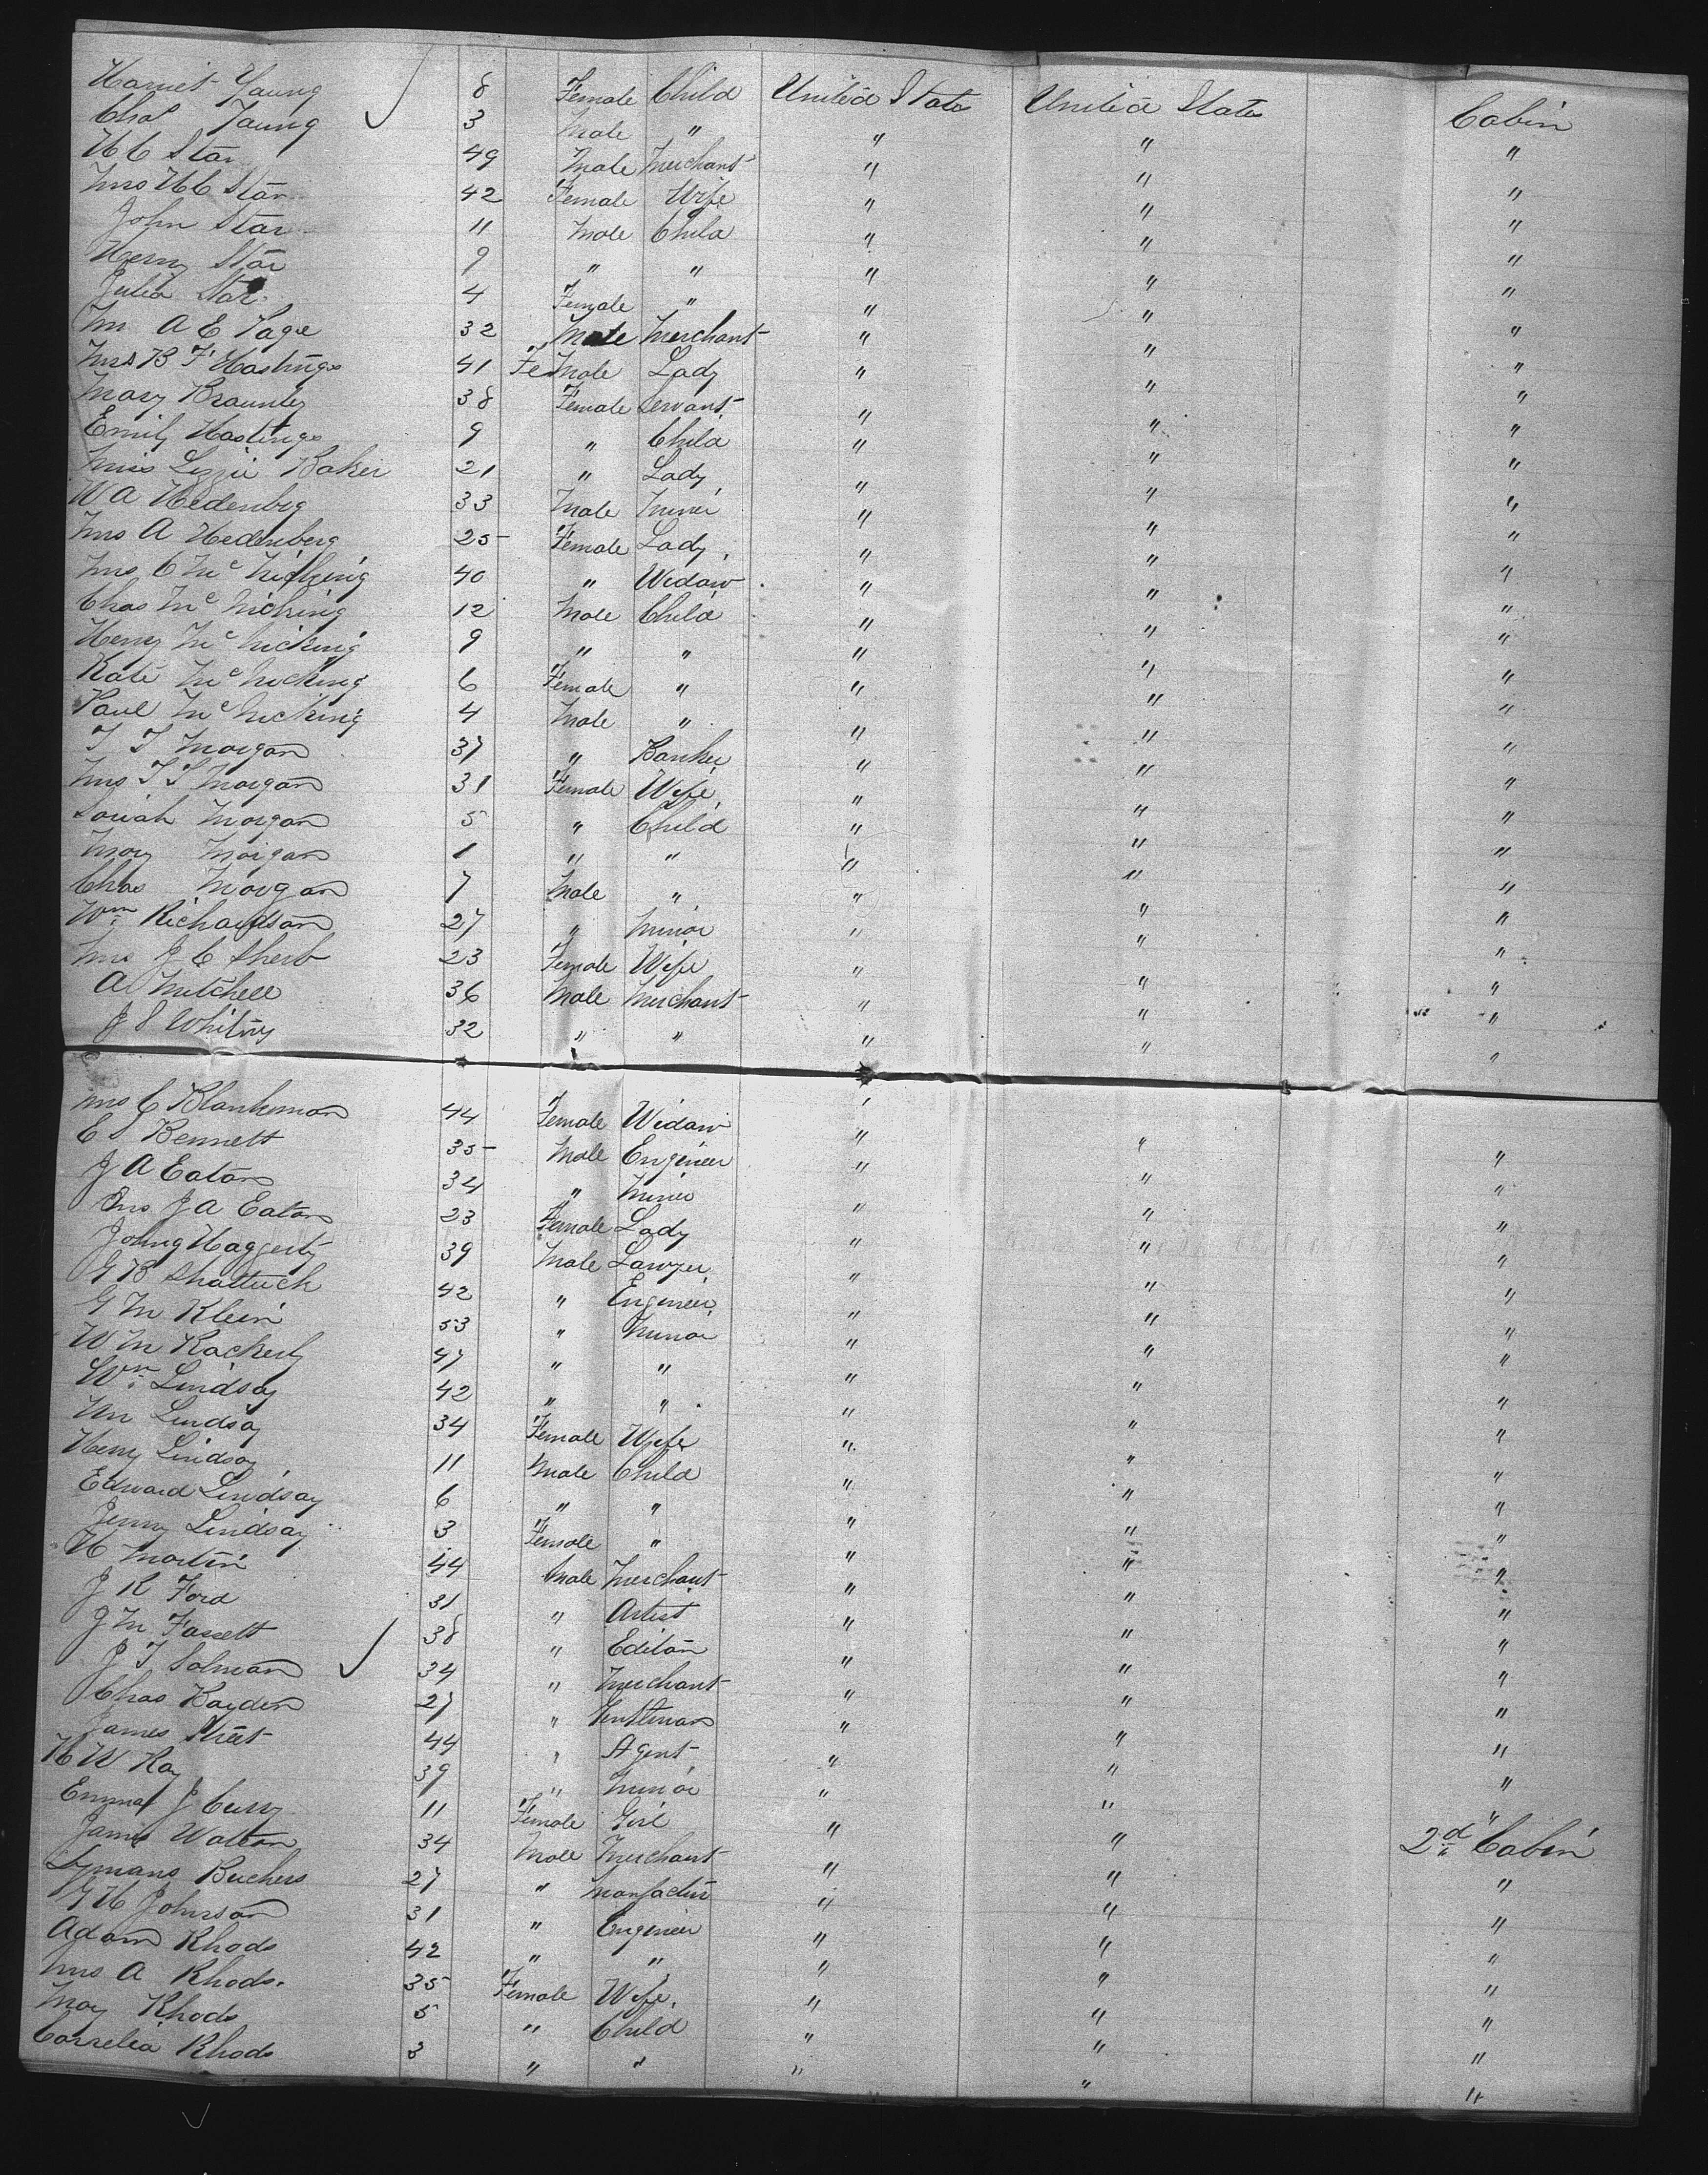 Harriet Young 8 Female Child United States United States Cabin
Chas Young 3 Male " " " "
H C Star 49 Male Merchant " " "
Mrs H C Star 42 Female Wife " " "
John Star 11 Male Child " " "
Henry Star 9 " " " " "
Julia Star 4 Female " " " "
Mr A E Page 32 Male Merchant " " "
Mrs B F Hastings 41 FeMale Lady " " "
Mary Braunley 38 Female Servant " " "
Emily Hastings 9 " Child " " "
Miss Lizzie Baker 21 " Lady " " "
W A Hedenberg 33 Male Miner " " "
Mrs A Hedenberg 25 Female Lady " " "
Mrs C Mc Nicking 40 " Widow " " "
Chas Mc Nicking 12 Male Child " " "
Henry Mc Nicking 9 " " " " "
Kate Mc Nicking 6 Female " " " "
Paul Mc Nicking 4 Male " " " "
T T Morgan 37 " Banker " " "
Mrs T T Morgan 31 Female Wife " " "
Sariah Morgan 5 " Child " " "
Mary Morgan 1 " " " " "
Chas Morgan 7 Male " " " "
Wm Richardson 27 " Minor " " "
Mrs J C Sherb 23 Female Wife " " "
A Mitchell 36 Male Merchant " " "
J S Whitny 32 " " " " "
Mrs C Blankeman 44 Female Widow " " "
E S Bennett 35 Male Engineer " " "
J A Eaton 34 " Miner " " "
Mrs J A Eaton 23 Female Lady " " "
John Haggerty 39 Male Lawyer " " "
G B Shattuck 42 " Engineer " " "
G M Klein 53 " Minor " " "
W M Rackerly 47 " " " " "
Wm Lindsay 42 " " " " "
Mr Lindsay 34 Female Wife " " "
Henry Lindsay 11 Male Child " " "
Edward Lindsay 6 " " " " "
Jenny Lindsay 3 Female " " " "
H Martin 44 Male Merchant " " "
J R Ford 31 " Artist " " "
J M Fassett 38 " Editor " " "
J T Solman 34 " Merchant " " "
Chas Hayden 27 " Gentleman " " "
James Street 44 " Agent " " "
H W Ray 39 " Minor " " "
Emma J Curry 11 Female Girl " " "
James Watson 34 Male Merchant " " 2d Cabin
Lymans Buchers 27 " Manfactur " " "
G H Johnson 31 " Engineer " " "
Adam Rhods 42 " " " " "
Mrs A Rhods. 35 Female Wife. " " "
May Rhods 5 " Child " " "
Correlia Rhods 3 " " " " "